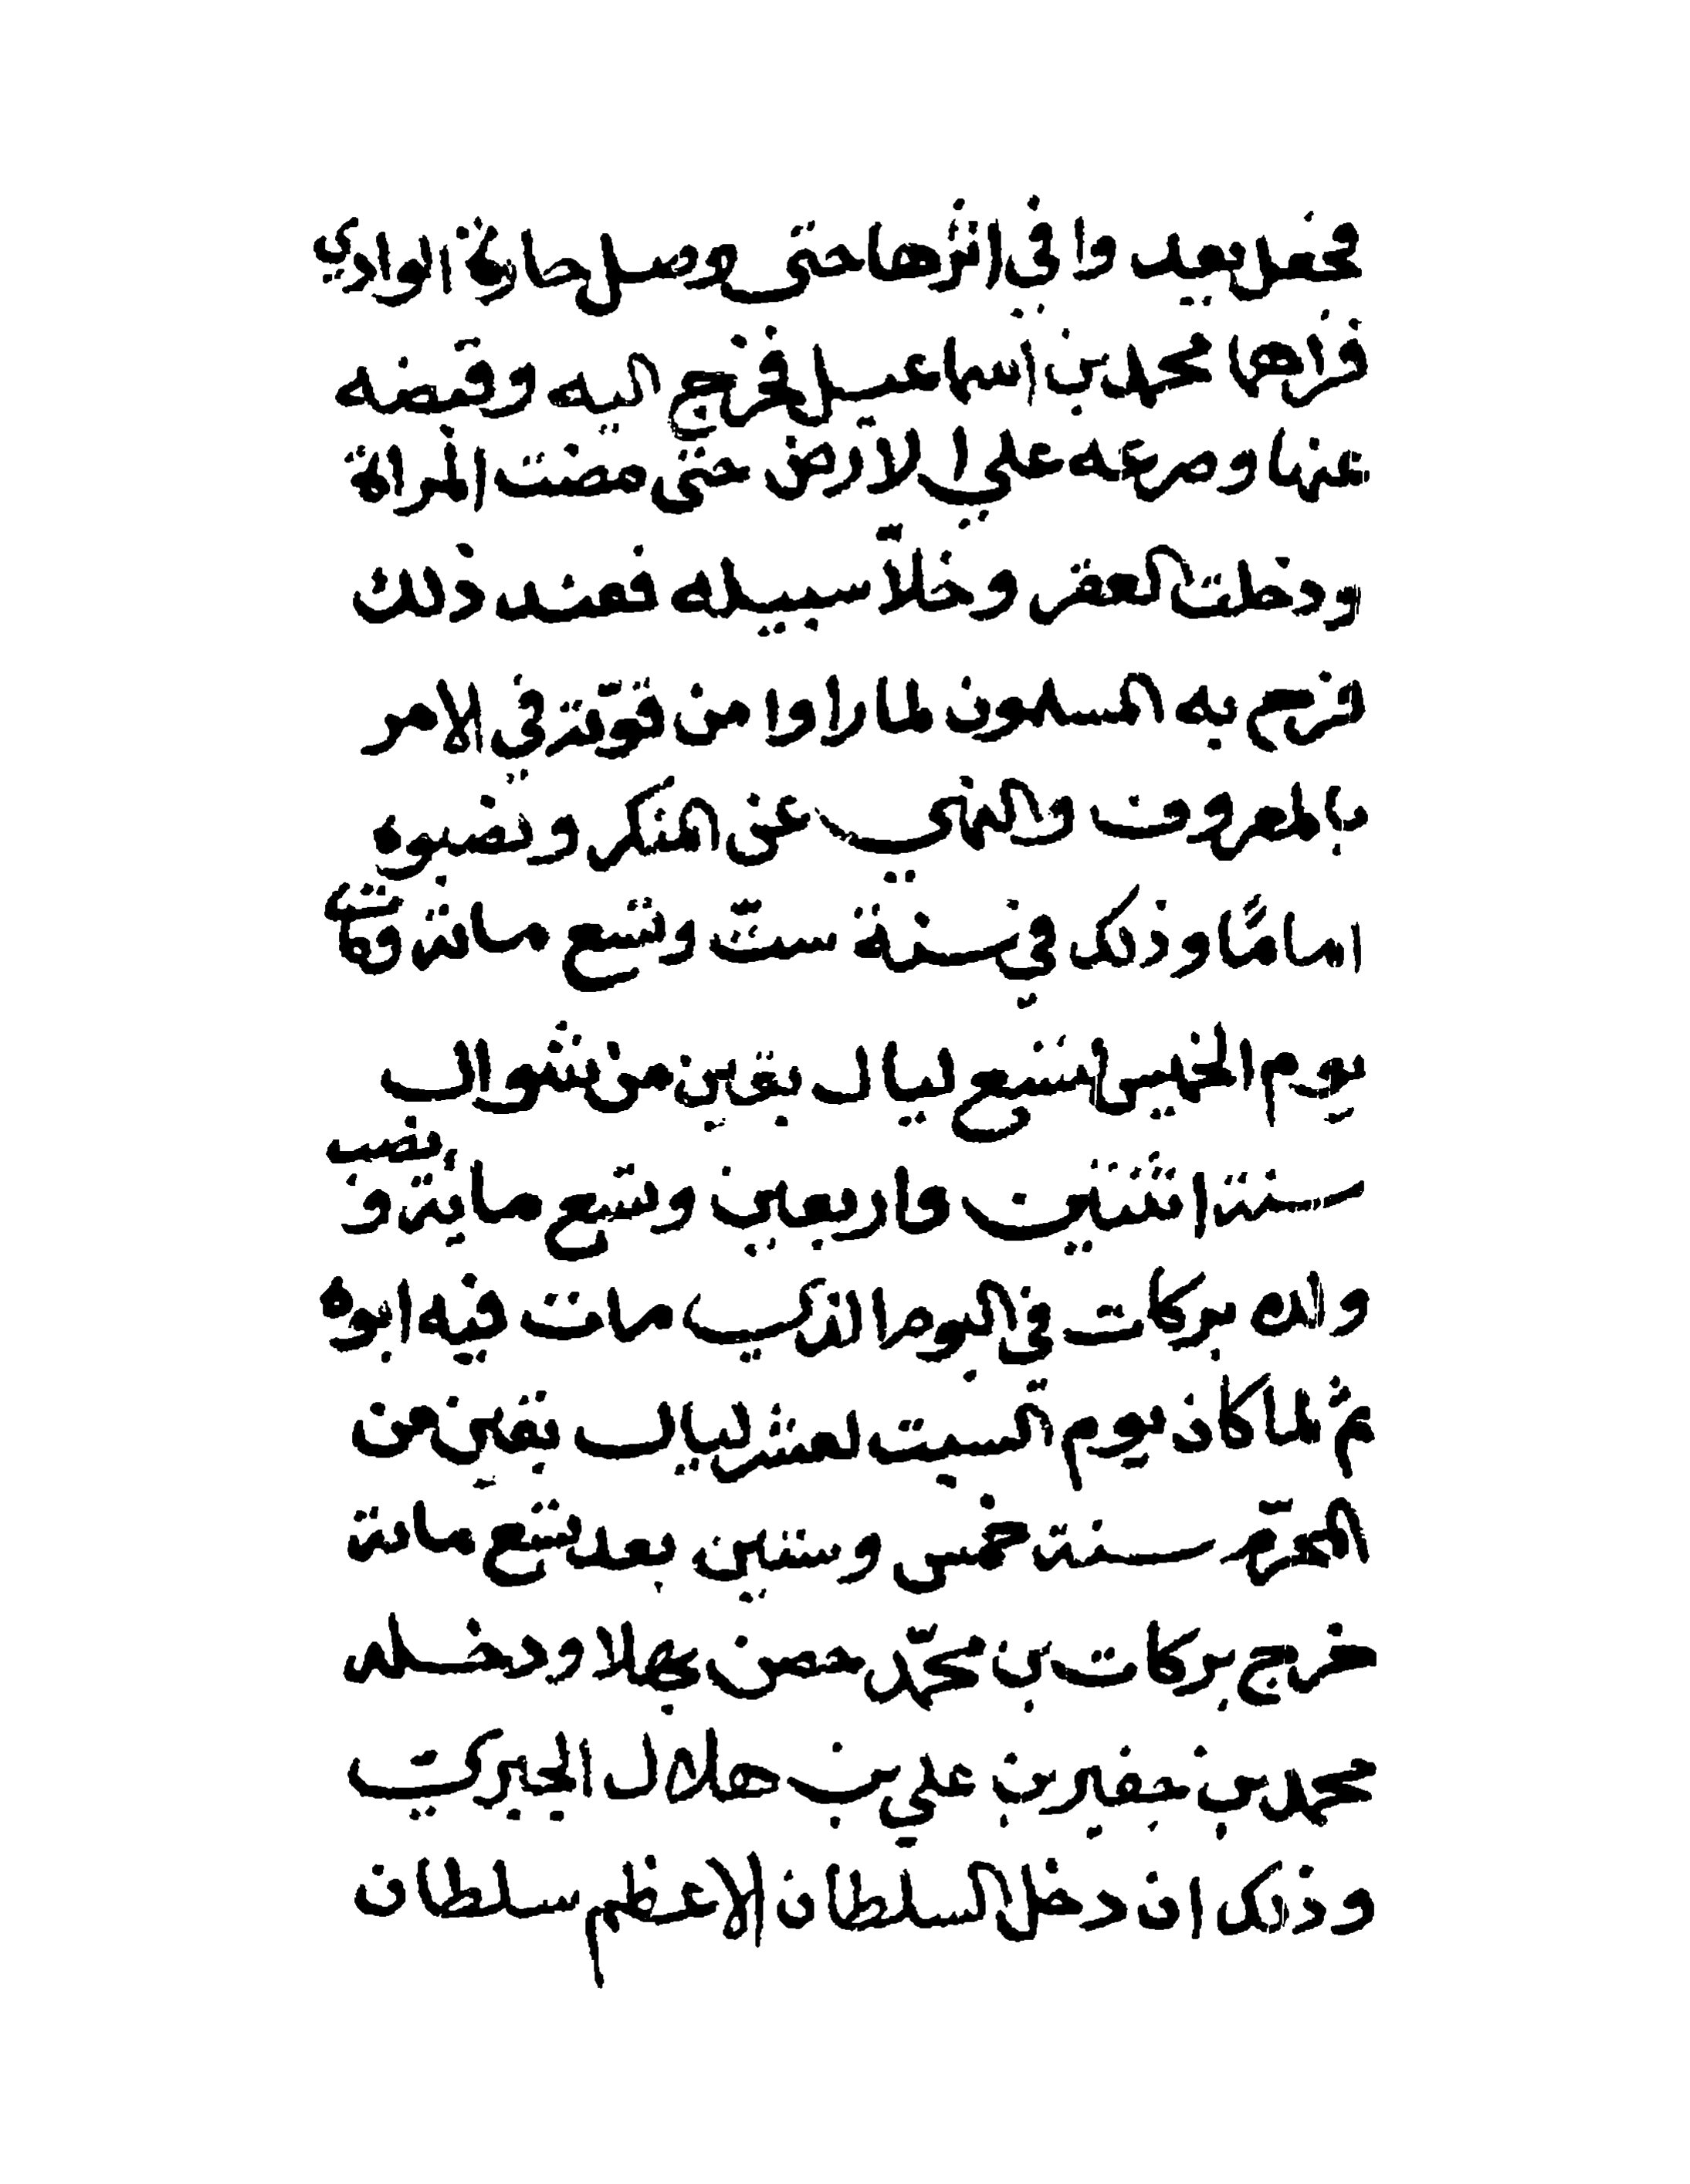 فجعل يعدوا في اثرها حتى وصل حارة الوادي
فرآها محمد بن اسماعيل فخرج اليه وقبضه
عنها وصرعه علي الارض حتى مضت المراة
ودخلت العقر وخلا سبيله فعند ذلك
فرح به المسلمون لما راوا من قوته في الامر
بالمعروف والنهي عن المنكر ونصبوه
امامًا وذلك في سنة ستّ وتسع مائة ومات
يوم الخميس لتسع ليال بقين من شوال
سنة اثنتين واربعين وتسع مائة ونصب
ولده بركات في اليوم الذي مات فيه ابوه
ثم لما كان يوم السبت لعشر ليال بقين من
المحرّم سنة خمس وستين بعد تسع مائة
خرج بركات بن محمّد حصن بهلا ودخله
محمد بن جفير بن علي بن هلال الجبري
وذلك ان دخل السلطان الاعظم سلطان